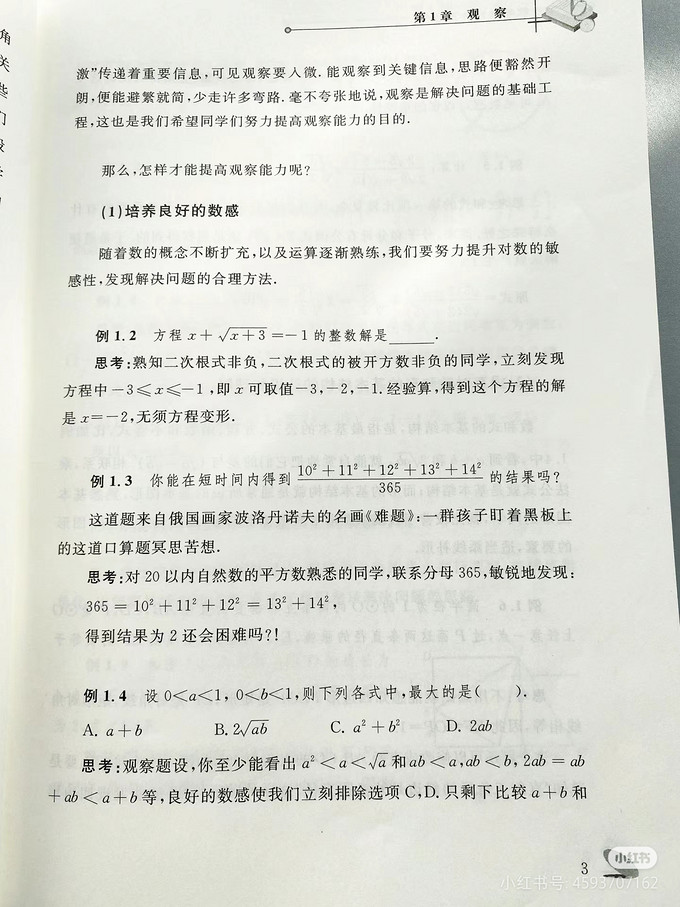 第1章 观 察
激”传递着重要信息,可见观察要入微.能观察到关键信息,思路便豁然开
朗,便能避繁就简,少走许多弯路.毫不夸张地说,观察是解决问题的基础工
程,这也是我们希望同学们努力提高观察能力的目的.
那么,怎样才能提高观察能力呢?
(1)培养良好的数感
随着数的概念不断扩充,以及运算逐渐熟练,我们要努力提升对数的敏
感性,发现解决问题的合理方法.
例 1.2 方程 x+√(x+3)=-1 的整数解是______.
思考:熟知二次根式非负,二次根式的被开方数非负的同学,立刻发现
方程中-3≤x≤-1,即 x 可取值-3,-2,-1.经验算,得到这个方程的解
是 x=-2,无须方程变形.
例 1.3 你能在短时间内得到 (10²+11²+12²+13²+14²)/365 的结果吗?
这道题来自俄国画家波洛丹诺夫的名画《难题》:一群孩子盯着黑板上
的这道口算题冥思苦想.
思考:对 20 以内自然数的平方数熟悉的同学,联系分母 365,敏锐地发现:
365=10²+11²+12²=13²+14²,
得到结果为 2 还会困难吗?!
例 1.4 设 0<a<1, 0<b<1,则下列各式中,最大的是( ).
A. a+b B. 2√ab C. a²+b² D. 2ab
思考:观察题设,你至少能看出 a²<a<√a 和 ab<a,ab<b, 2ab=ab
+ab<a+b 等,良好的数感使我们立刻排除选项 C,D. 只剩下比较 a+b 和
3
小红书
小红书号: 4593707162